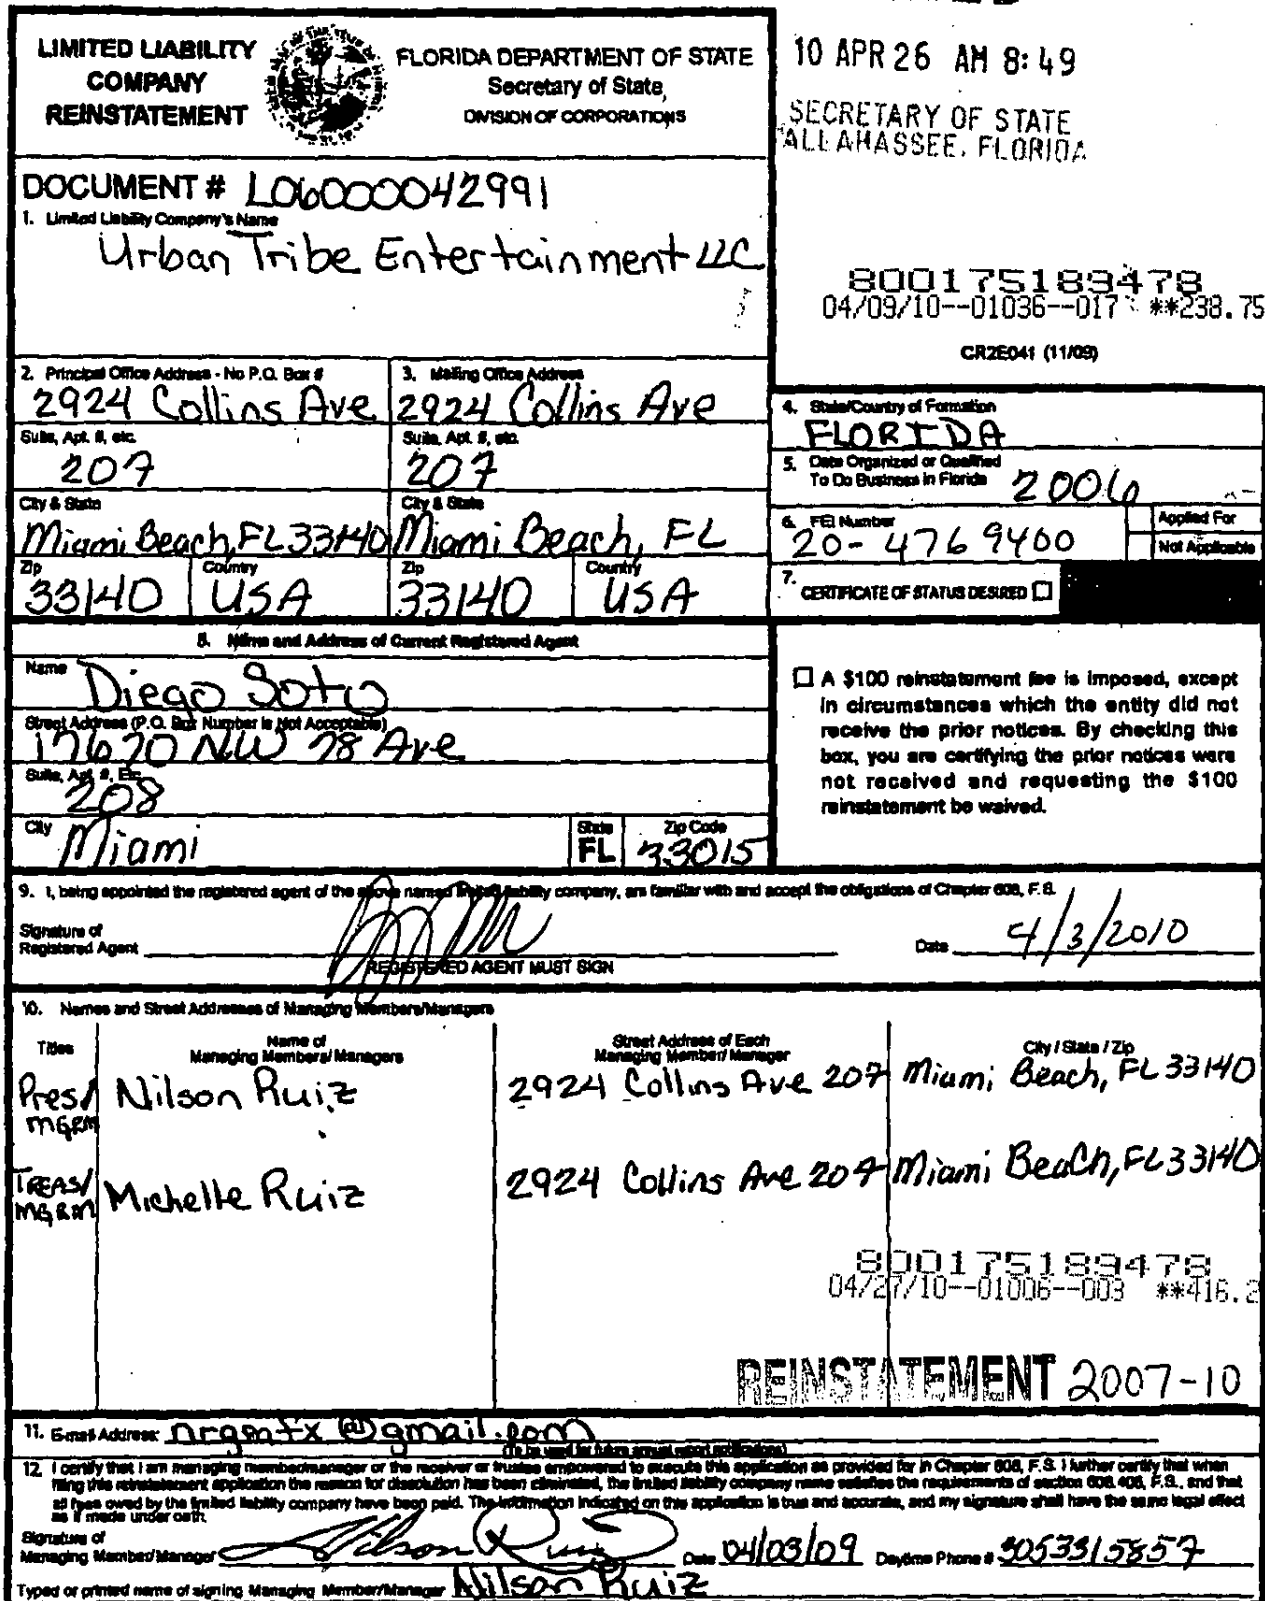 LIMITED LIABILITY
COMPANY
REINSTATEMENT
FLORIDA DEPARTMENT OF STATE
Secretary of State
DIVISION OF CORPORATIONS
10 APR 26 AM 8:49
SECRETARY OF STATE
ALLAHASSEE, FLORIDA
DOCUMENT # L06000042991
1. Limited Liability Company's Name
Urban Tribe Entertainment LLC
800175189478
04/09/10--01036--017 **238.75
CR2E041 (11/09)
2. Principal Office Address - No P.O. Box #
2924 Collins Ave
Suite, Apt. #, etc.
207
City & State
Miami Beach, FL 33140
Zip
33140
Country
USA
3. Mailing Office Address
2924 Collins Ave
Suite, Apt. #, etc.
207
City & State
Miami Beach, FL
Zip
33140
Country
USA
4. State/Country of Formation
FLORIDA
5. Date Organized or Qualified
To Do Business in Florida
2006
6. FEI Number
20-4769400
Applied For
Not Applicable
7. CERTIFICATE OF STATUS DESIRED
8. Name and Address of Current Registered Agent
Name
Diego Soto
Street Address (P.O. Box Number is Not Acceptable)
17670 NW 78 Ave
Suite, Apt. #, Etc.
208
City
Miami
State
FL
Zip Code
33015
A $100 reinstatement fee is imposed, except
in circumstances which the entity did not
receive the prior notices. By checking this
box, you are certifying the prior notices were
not received and requesting the $100
reinstatement be waived.
9. I, being appointed the registered agent of the above named limited liability company, am familiar with and accept the obligations of Chapter 608, F.S.
Signature of
Registered Agent
REGISTERED AGENT MUST SIGN
Date 4/3/2010
10. Names and Street Addresses of Managing Members/Managers
Titles
Name of
Managing Members/Managers
Street Address of Each
Managing Member/Manager
City / State / Zip
Pres/ Nilson Ruiz 2924 Collins Ave 207 Miami Beach, FL 33140
MGRM
TREAS/ Michelle Ruiz 2924 Collins Ave 207 Miami Beach, FL 33140
MGRM
800175189478
04/27/10--01006--003 **416.2
REINSTATEMENT 2007-10
11. E-mail Address: nrgmtx@gmail.com
(To be used for future annual report notifications)
12. I certify that I am managing member/manager or the receiver or trustee empowered to execute this application as provided for in Chapter 608, F.S. I further certify that when
filing this reinstatement application the reason for dissolution has been eliminated, the limited liability company name satisfies the requirements of section 608.406, F.S., and that
all fees owed by the limited liability company have been paid. The information indicated on this application is true and accurate, and my signature shall have the same legal effect
as if made under oath.
Signature of
Managing Member/Manager Nilson Ruiz Date 04/03/09 Daytime Phone # 3053315857
Typed or printed name of signing Managing Member/Manager Nilson Ruiz